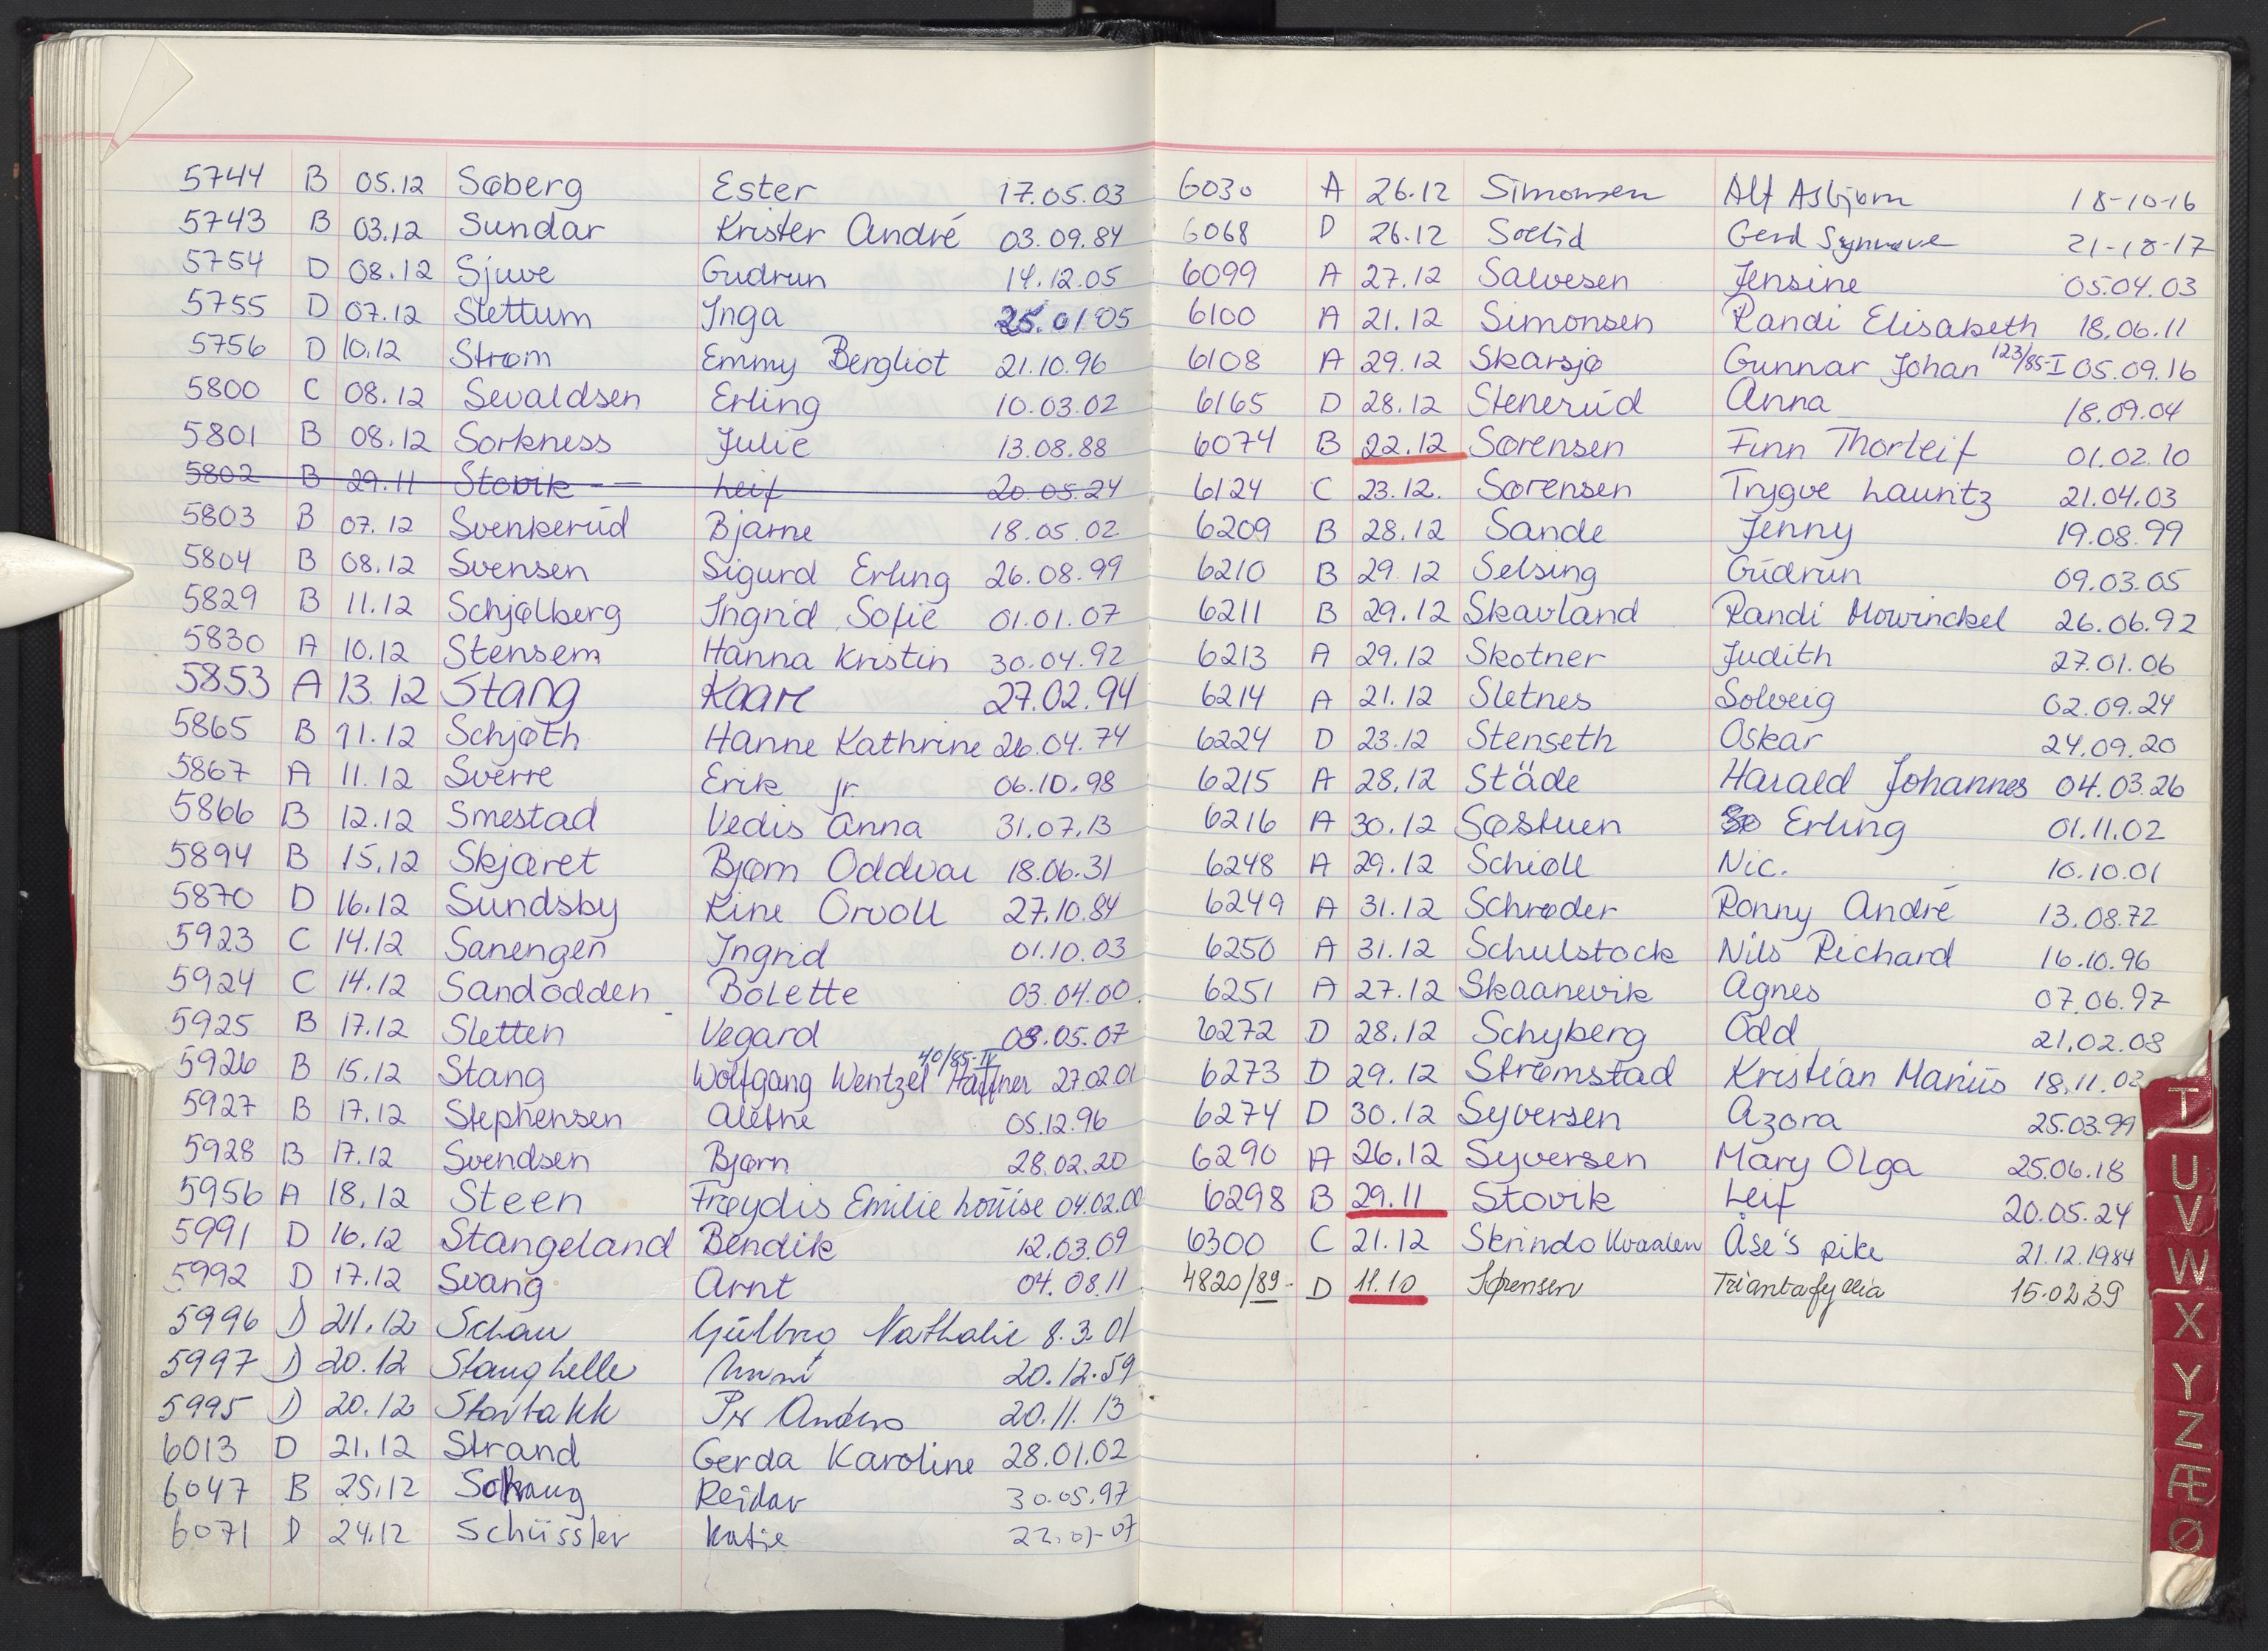 5744 B 05.12 Søberg Ester 17.05.03
5743 B 03.12 Sundar Krister André 03.09.84
5754 D 08.12 Sjuve Gudrun 14.12.05
5755 D 07.12 Slettum Inga 25.01.05
5756 D 10.12 Strøm Emmy Bergliot 21.10.96
5800 C 08.12 Sevaldsen Erling 10.03.02
5801 B 08.12 Sorkness Julie 13.08.88
5802 B 29.11 Stovik Leif 20.05.24
5803 B 07.12 Svenkerud Bjarne 18.05.02
5804 B 08.12 Svensen Sigurd Erling 26.08.99
5829 B 11.12 Schjølberg Ingrid Sofie 01.01.07
5830 A 10.12 Stensem Hanna Kristin 30.04.92
5853 A 13.12 Stang Kaare 27.02.94
5865 B 11.12 Schjøth Hanne Kathrine 26.04.74
5867 A 11.12 Sverre Erik jr. 06.10.98
5866 B 12.12 Smestad Vedis Anna 31.07.13
5894 B 15.12 Skjæret Bjørn Oddvar 18.06.31
5870 D 16.12 Sundsby Line Orvoll 27.10.84
5923 C 14.12 Sanengen Ingrid 01.10.03
5924 C 14.12 Sandodden Bolette 03.04.00
5925 B 17.12 Sletten Vegard 08.05.07
40/85-IV
5926 B 15.12 Stang Wolfgang Wentzel Haffner 27.02.01
5927 B 17.12 Stephensen Alethe 05.12.96
5928 B 17.12 Svendsen Bjørn 28.02.20
5956 A 18.12 Steen Frøydis Emilie Louise 04.02.00
5991 D 16.12 Stangeland Bendik 12.03.09
5992 D 17.12 Svang Arnt 04.08.11
5996 D 21.12 Schau Gulbrg Nathalie 8.3.01
5997 D 20.12 Stanghelle Unni 20.12.59
5995 D 20.12 Storbakk Per Anders 20.11.13
6013 D 21.12 Strand Gerda Karoline 28.01.02
6047 B 25.12 Reidar 30.05.97
6071 D 24.12 Schüssler Katie 22.07-07
6030 A 26.12 Simonsen Alf Asbjørn 18-10-16
6068 D 26.12 Sælid Gerd Synnøve 21-10-17
6099 A 27.12 Salvesen Jensine 05.04.03
6100 A 21.12 Simonsen Randi Elisabeth 18.06.11
6108 A 29.12 Skarsjø Gunnar Johan 123/85-I 05.09.16
6165 D 28.12 Stenerud Anna 18.09.04
6074 B 22.12 Sørensen Finn Thorleif 01.02.10
6124 C 23.12. Sørensen Trygve Lauritz 21.04.03
6209 B 28.12 Sande Jenny 19.08.99
6210 B 29.12 Selsing Gudrun 09.03.05
6211 B 29.12 Skavland Randi Mowinckel 26.06.92
6213 A 29.12 Skotner Judith 27.01.06
6214 A 21.12 Sletnes Solveig 02.09.24
6224 D 23.12 Stenseth Oskar 24.09.20
6215 A 28.12 Städe Harald Johannes 04.03.26
6216 A 30.12 Søstuen Erling 01.11.02
6248 A 29.12 Schiøll Nic. 10.10.01
6249 A 31.12 Schrøder Ronny André 13.08.72
6250 A 31.12 Schulstock Nils Richard 16.10.96
6251 A 27.12 Skaanevik Agnes 07.06.97
6272 D 28.12 Schyberg Odd 21.02.08
6273 D 29.12 Strømstad Kristian Marius 18.11.02
6274 D 30.12 Syversen Azora 25.03.99
6290 A 26.12 Syversen Mary Olga 25.06.18
6298 B 29.11 Stovik Leif 20.05.24
6300 C 21.12 Skrindo Kvaalen Åse's pike 21.12.1984
4820/89- D 11.10 Sørensen Triantafyllia 15.02.39
T
U
V
W
X
Y
Z
Æ
Ø